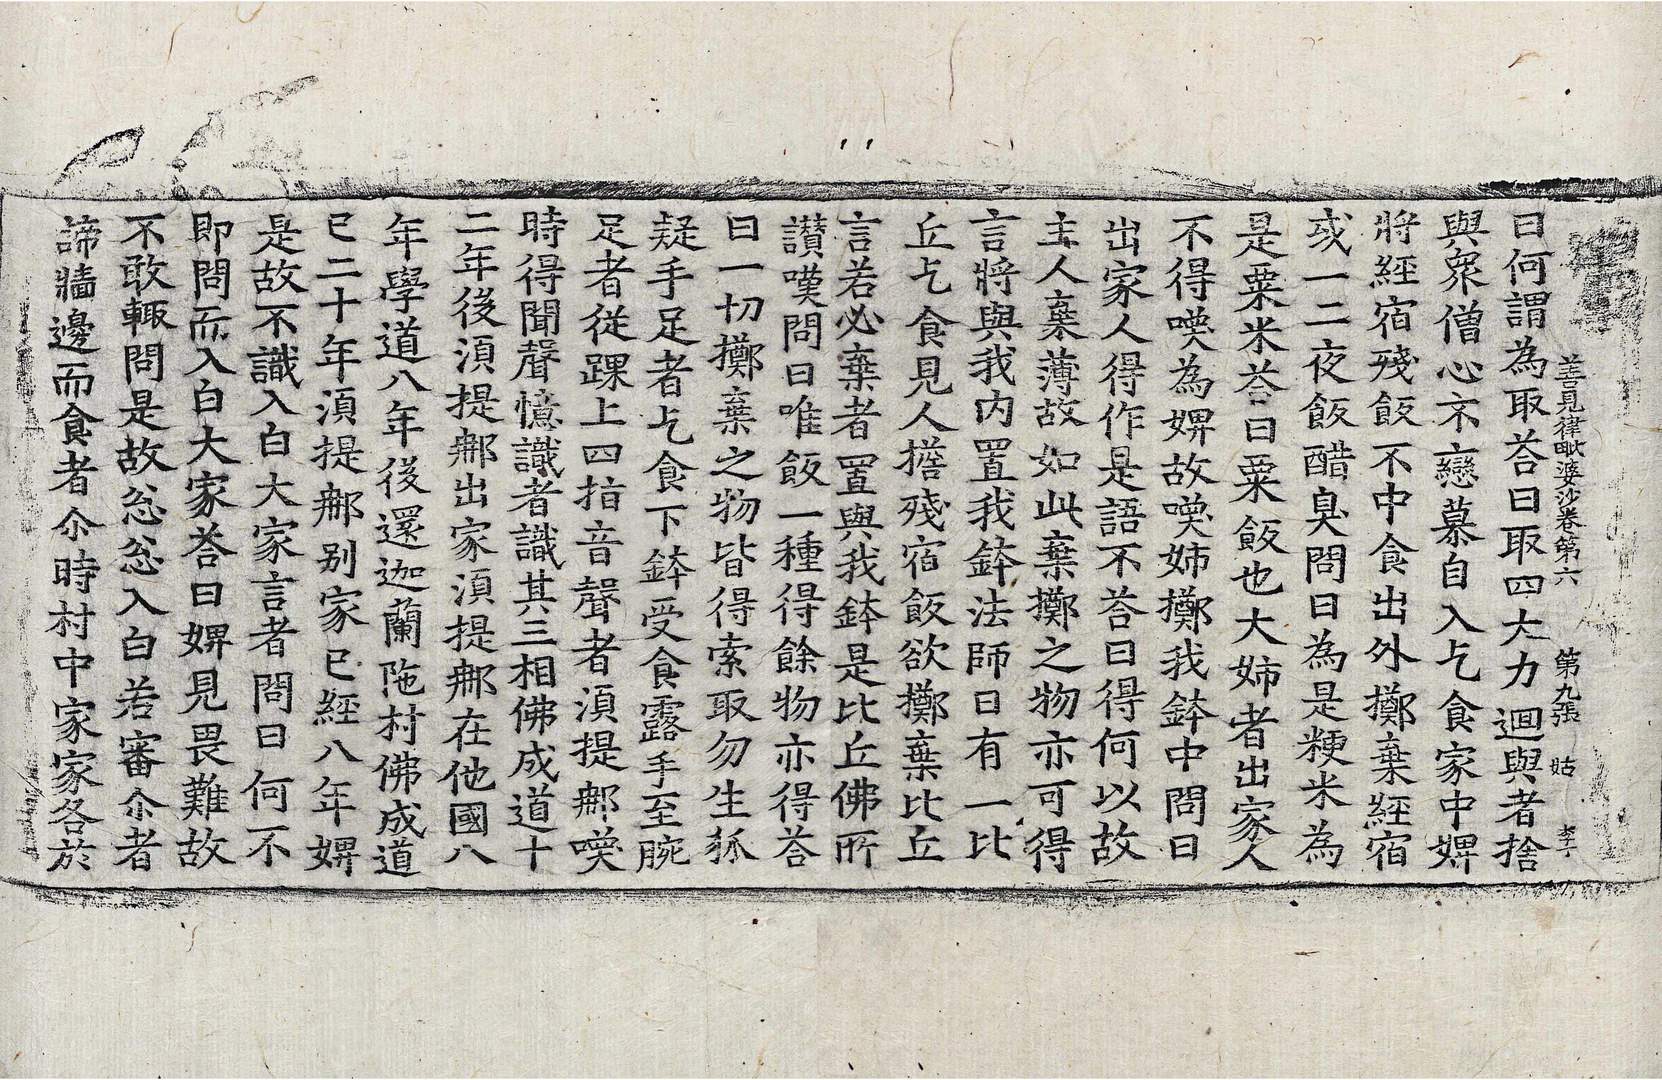 善見律毗婆沙卷第六 第九張 姑 李
曰何謂為取荅曰取四大力迴與者捨
與衆僧心不戀慕自入乞食家中婢
將經宿殘飯不中食出外擲棄經宿
或一二夜飯醋臭問曰為是粳米為
是粟米荅曰粟飯也大姉者出家人
不得喚為婢故喚姉擲我鉢中問曰
出家人得作是語不荅曰得何以故
主人棄薄故如此棄擲之物亦可得
言將與我內置我鉢法師曰有一比
丘乞食見人擔殘宿飯欲擲棄比丘
言若必棄者置與我鉢是比丘佛所
讃嘆問曰唯飯一種得餘物亦得荅
曰一切擲棄之物皆得索取勿生狐
疑手足者乞食下鉢受食露手至腕
足者從踝上四指音聲者湏提郍喚
時得聞聲憶識者識其三相佛成道十
二年後湏提郍出家湏提郍在他國八
年學道八年後還迦蘭陁村佛成道
已二十年湏提郍别家已經八年婢
是故不識入白大家言者問曰何不
即問而入白大家荅曰婢見畏難故
不敢輙問是故忩忩入白若審尒者
諦牆邊而食者尒時村中家家各於